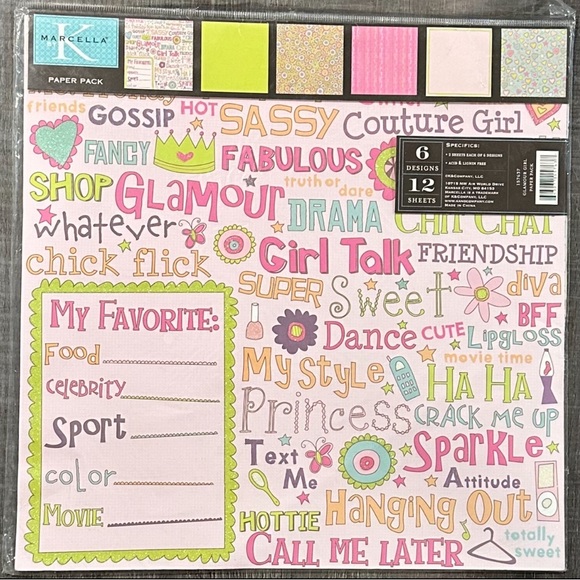 K
MARCELLA
PAPER PACK
friends GOSSIP HOT SASSY Couture Girl
FANCY FABULOUS
SHOP GLAMOUR truth or dare
DRAMA CHIT CHAT
whatever
chick flick Girl Talk FRIENDSHIP
SUPER Sweet diva
BFF
Dance CUTE Lipgloss
movie time
My Style HA HA
Princess CRACK ME UP
Sparkle
Text Me Attitude
Hanging Out
HOTTIE totally sweet
CALL ME LATER
MY FAVORITE:
Food
celebrity
Sport
color
MOVIE
6
DESIGNS
12
SHEETS
SPECIFICS:
• 2 SHEETS EACH OF 6 DESIGNS
• ACID & LIGNIN FREE
GLAMOUR GIRL
PAPER PACK
MADE IN CHINA